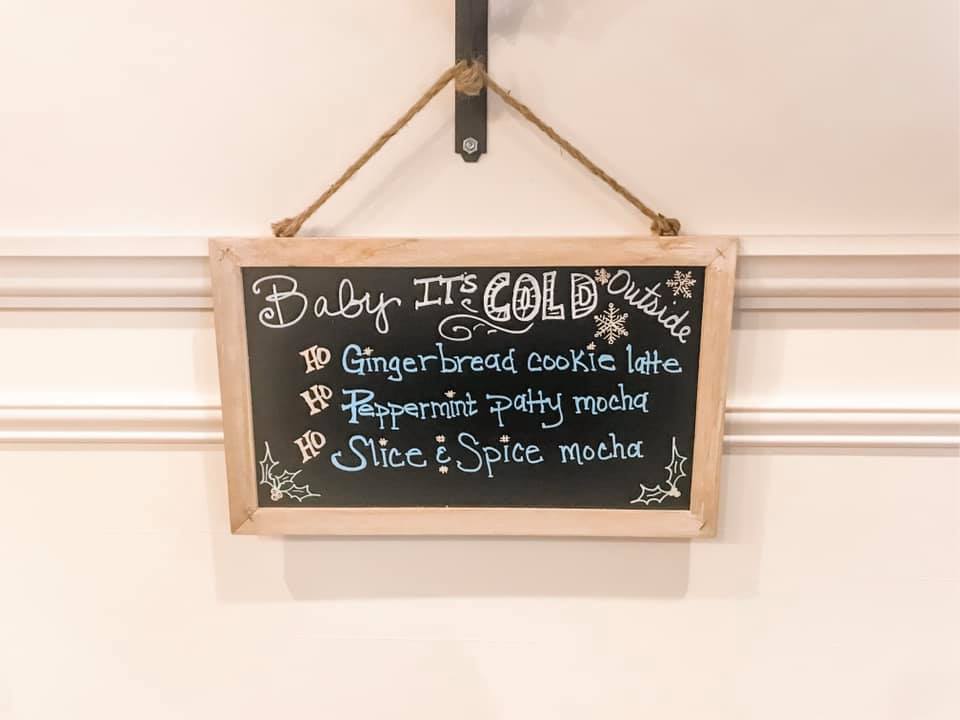 Baby IT'S COLD Outside
HO Gingerbread cookie latte
HO Peppermint patty mocha
HO Slice & Spice mocha